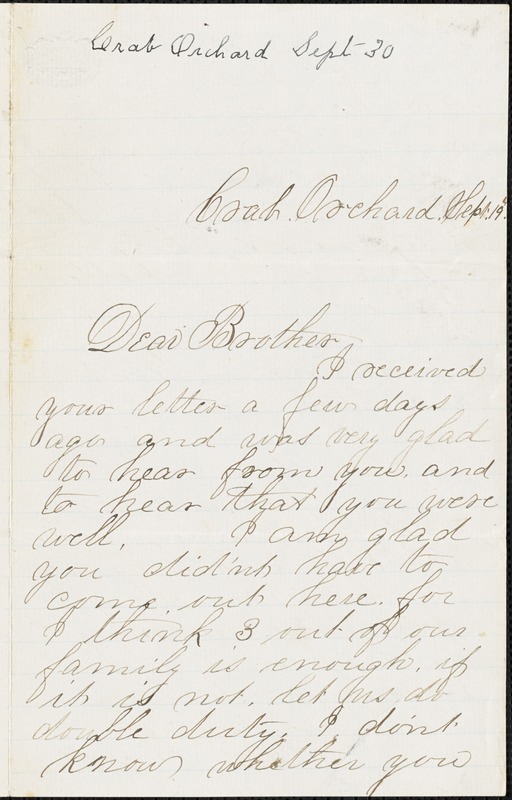 Crab Orchard Sept 30
Crab. Orchard. Sept. 19th
Dear Brother
I received
your letter a few days
ago and was very glad
to hear from you. and
to hear that you were
well. I am glad
you did'nt have to
come. out here. for
I think 3 out of our
family is enough. if
it is not. let us do
double duty. I dont
know whether you